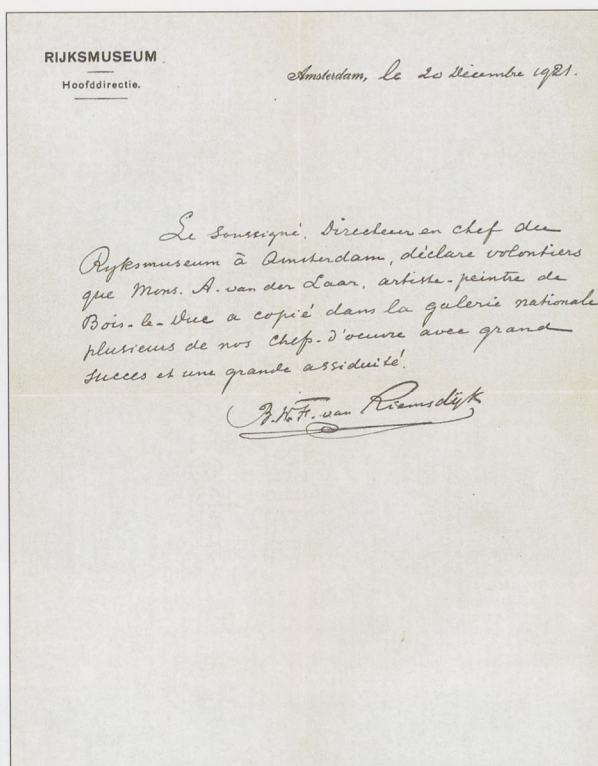 RIJKSMUSEUM
Hoofddirectie.
Amsterdam, le 20 Décembre 1921.
Le soussigné, Directeur en chef du
Ryksmuseum à Amsterdam, déclare volontiers
que Mons. A. van der Laar, artiste-peintre de
Bois-le-Duc a copié dans la galerie nationale
plusieurs de nos chefs-d'oeuvre avec grand
succes et une grande assiduité.
B.W.F. van Riemsdÿk